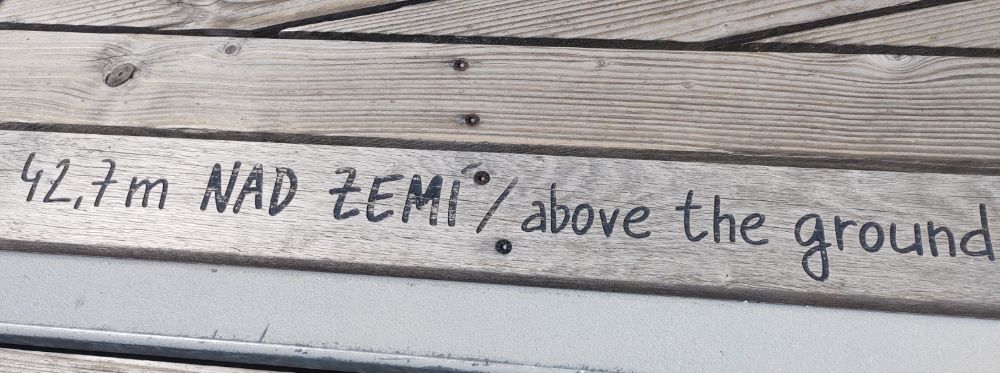 42,7m NAD ZEMÍ / above the ground